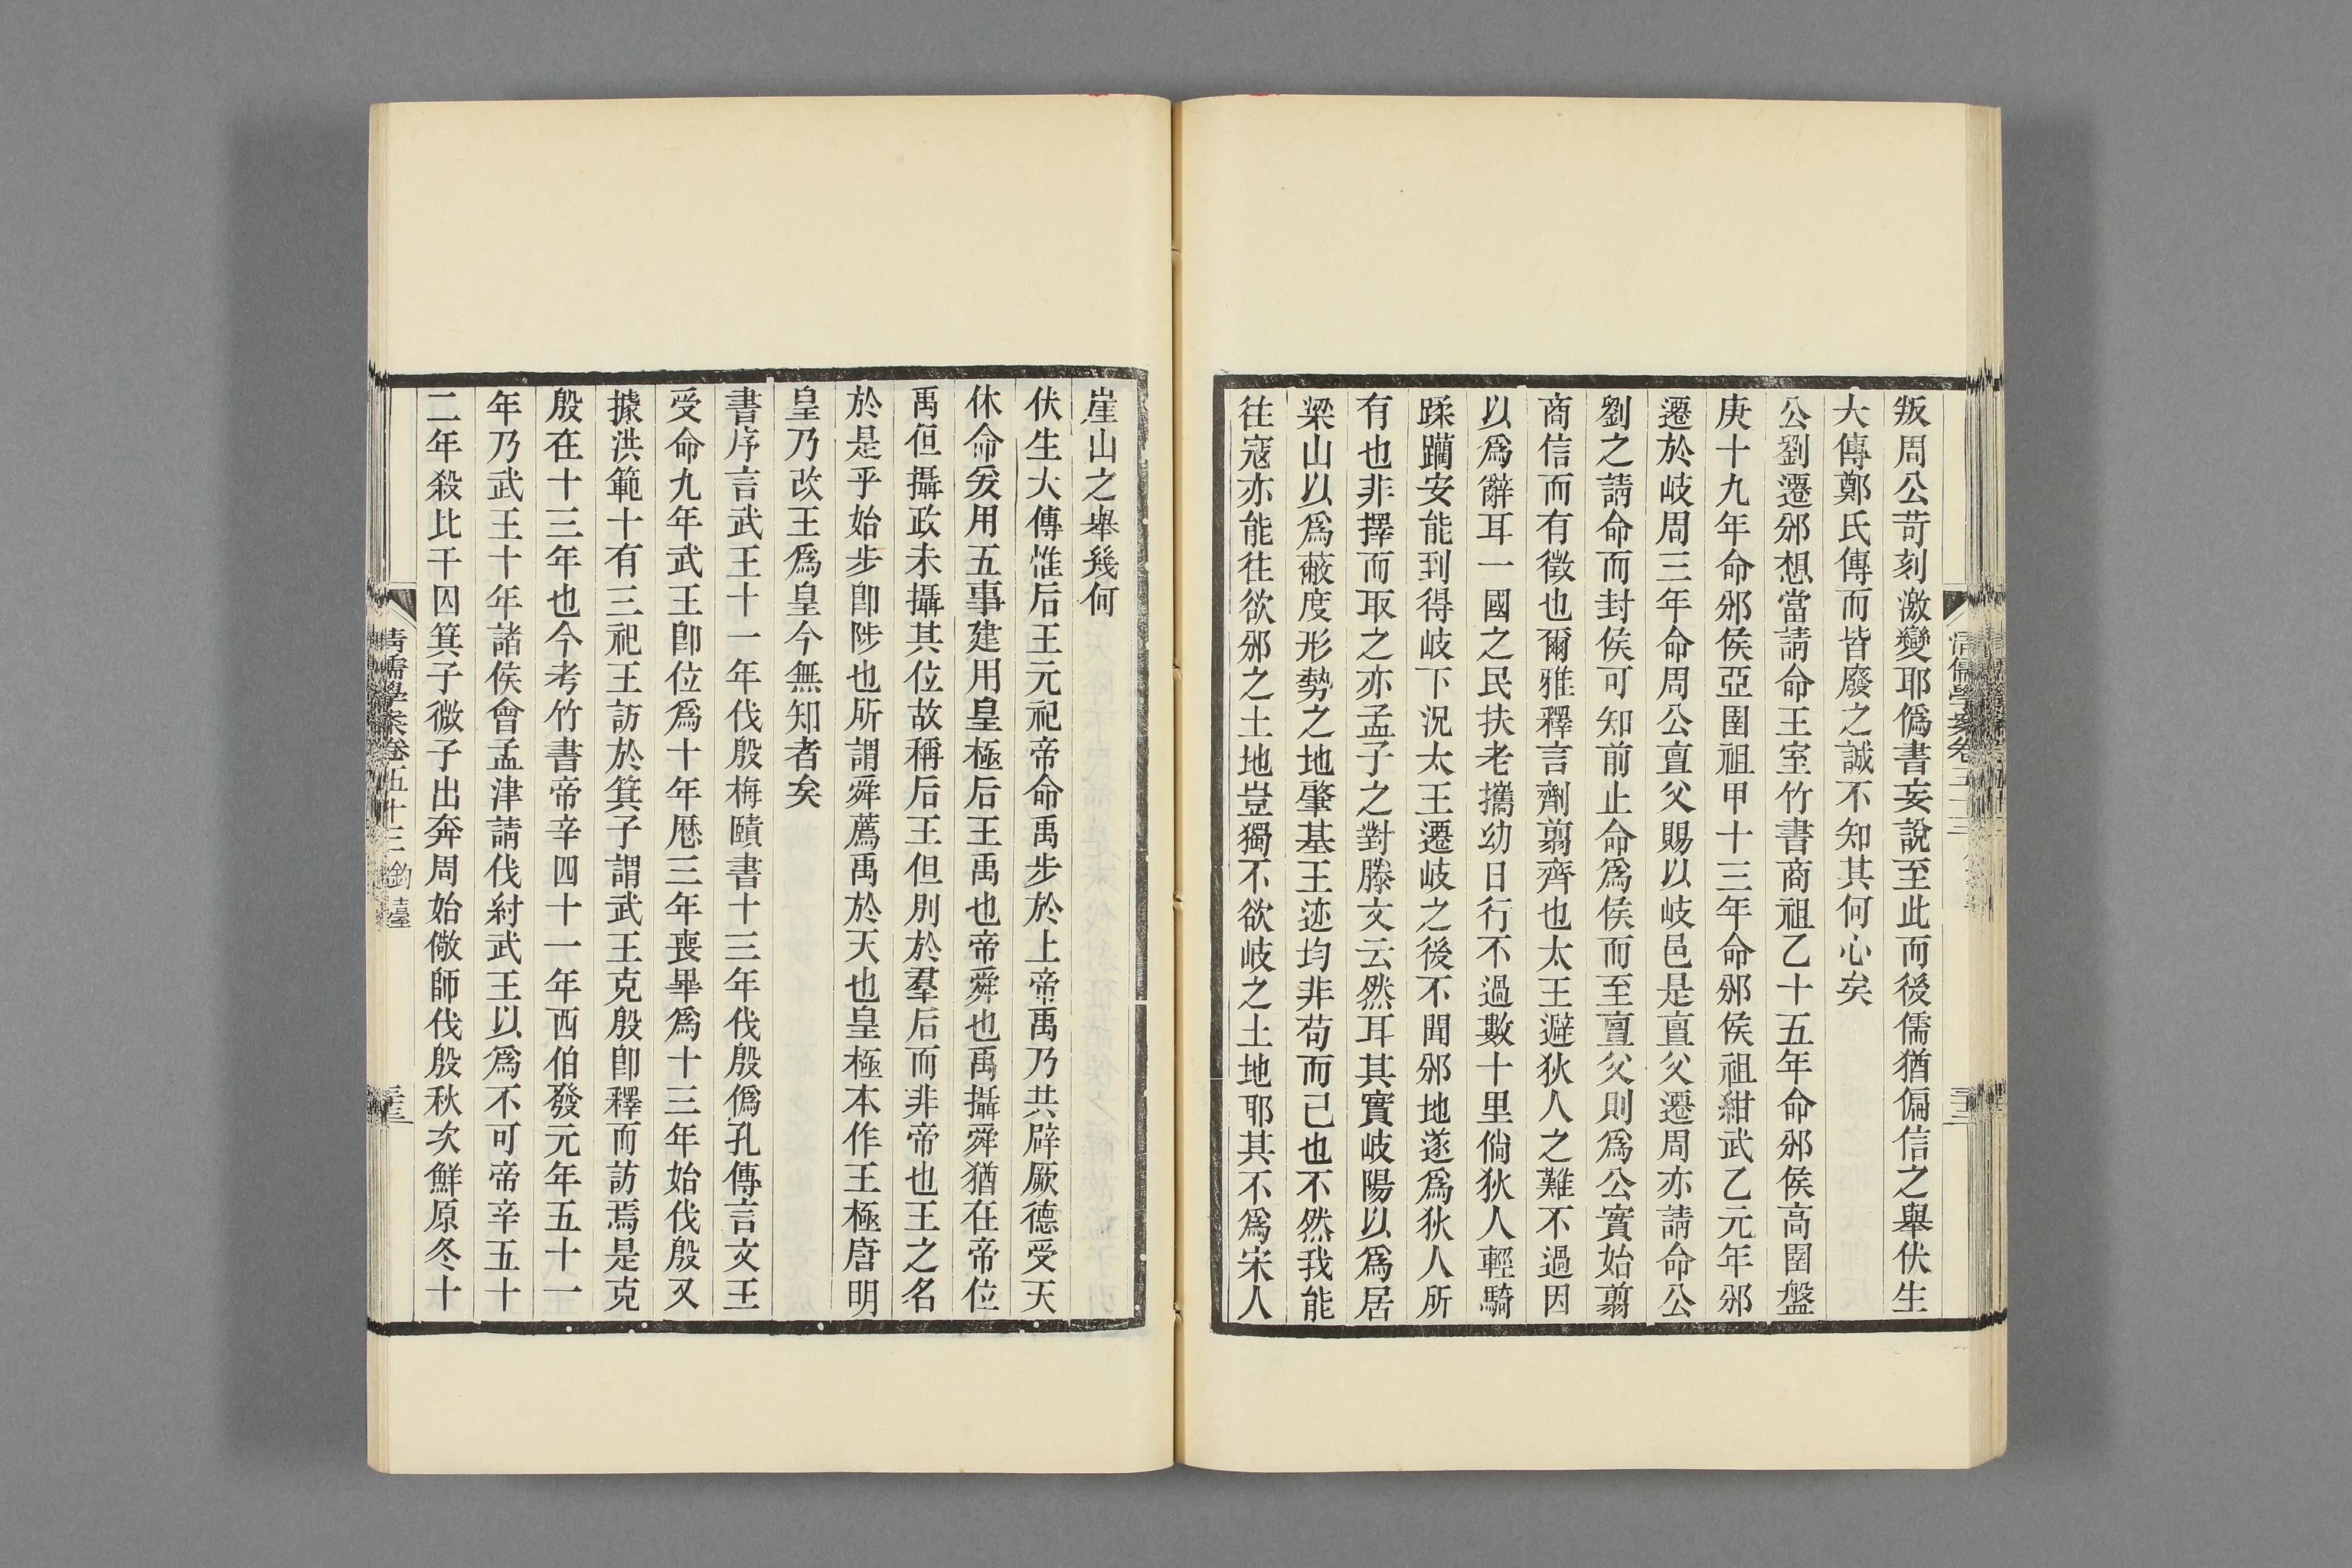 叛周公苛刻激變耶僞書妄說至此而後儒猶偏信之舉伏生
大傳鄭氏傳而皆廢之誠不知其何心矣
公劉遷邠想當請命王室竹書商祖乙十五年命邠侯高圉盤
庚十九年命邠侯亞圉祖甲十三年命邠侯祖紺武乙元年邠
遷於岐周三年命周公亶父賜以岐邑是亶父遷周亦請命公
劉之請命而封侯可知前止命爲侯而至亶父則爲公實始翦
商信而有徵也爾雅釋言劑翦齊也太王避狄人之難不過因
以爲辭耳一國之民扶老攜幼日行不過數十里倘狄人輕騎
蹂躪安能到得岐下況太王遷岐之後不聞邠地遂爲狄人所
有也非擇而取之亦孟子之對滕文云然耳其實岐陽以爲居
梁山以爲蔽度形勢之地肇基王迹均非苟而已也不然我能
往寇亦能往欲邠之土地豈獨不欲岐之土地耶其不爲宋人
崖山之舉幾何
伏生大傳惟后王元祀帝命禹步於上帝禹乃共辟厥德受天
休命爰用五事建用皇極后王禹也帝舜也禹攝舜猶在帝位
禹但攝政未攝其位故稱后王但別於羣后而非帝也王之名
於是乎始步卽陟也所謂舜薦禹於天也皇極本作王極唐明
皇乃改王爲皇今無知者矣
書序言武王十一年伐殷梅賾書十三年伐殷僞孔傳言文王
受命九年武王卽位爲十年厯三年喪畢爲十三年始伐殷又
據洪範十有三祀王訪於箕子謂武王克殷卽釋而訪焉是克
殷在十三年也今考竹書帝辛四十一年西伯發元年五十一
年乃武王十年諸侯會孟津請伐紂武王以爲不可帝辛五十
二年殺比干囚箕子微子出奔周始儆師伐殷秋次鮮原冬十
清儒學案卷五十三 鈞臺